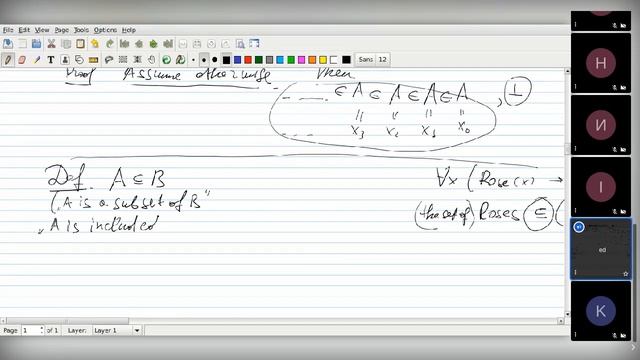 File Edit View Page Tools Options Help
Sans 12
Proof Assume otherwise Then
∈ A ∈ A ∈ A ∈ A , ⊥
x₃ x₂ x₁ x₀
Def. A ⊆ B
("A is a subset of B"
"A is included
∀x (Rose(x) →
(the set of) Roses ⊆ (
Page 1 of 1 Layer: Layer 1
Н
И
І
ed
К